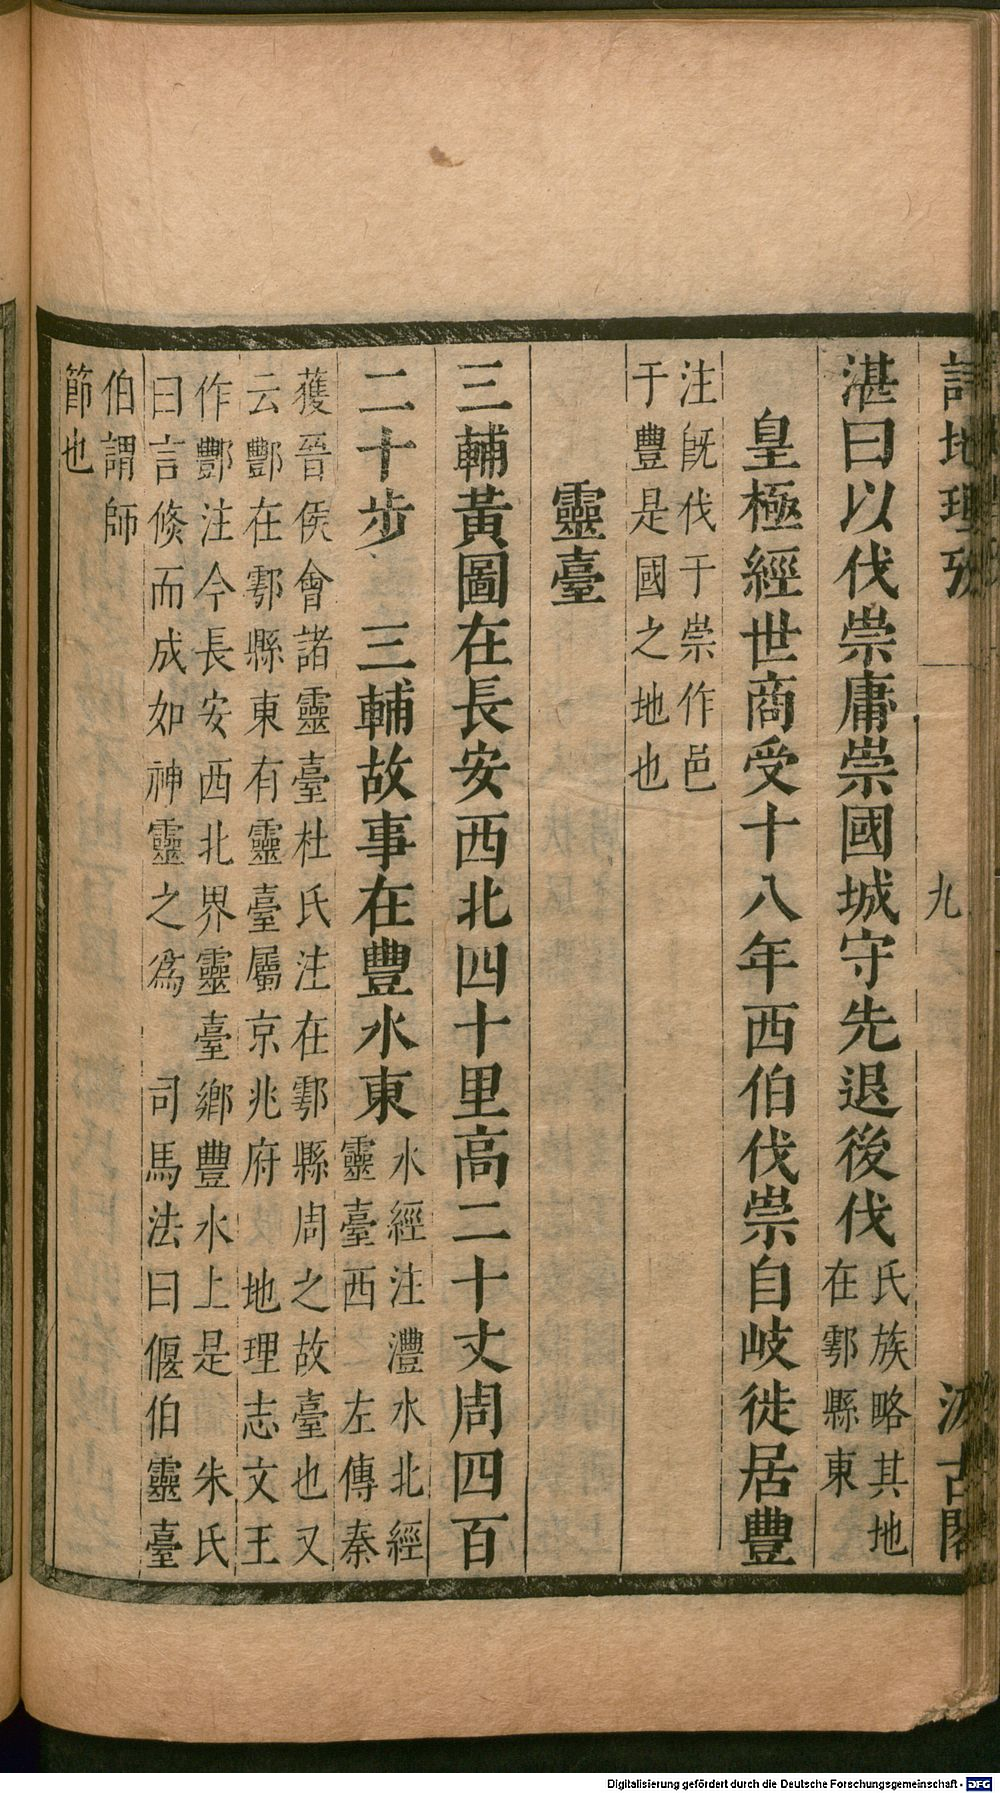 詩地理攷
九
汲古閣
湛曰以伐崇庸崇國城守先退後伐氏族略其地
在鄠縣東
皇極經世商受十八年西伯伐崇自岐徙居豐
注旣伐于崇作邑
于豐是國之地也
靈臺
三輔黃圖在長安西北四十里高二十丈周四百
二十步 三輔故事在豐水東水經注灃水北經
靈臺西 左傳秦
獲晉侯會諸靈臺杜氏注在鄠縣周之故臺也又
云酆在鄠縣東有靈臺屬京兆府 地理志文王
作酆注今長安西北界靈臺鄉豐水上是 朱氏
曰言倐而成如神靈之爲 司馬法曰偃伯靈臺
伯謂師
節也
Digitalisierung gefördert durch die Deutsche Forschungsgemeinschaft - DFG